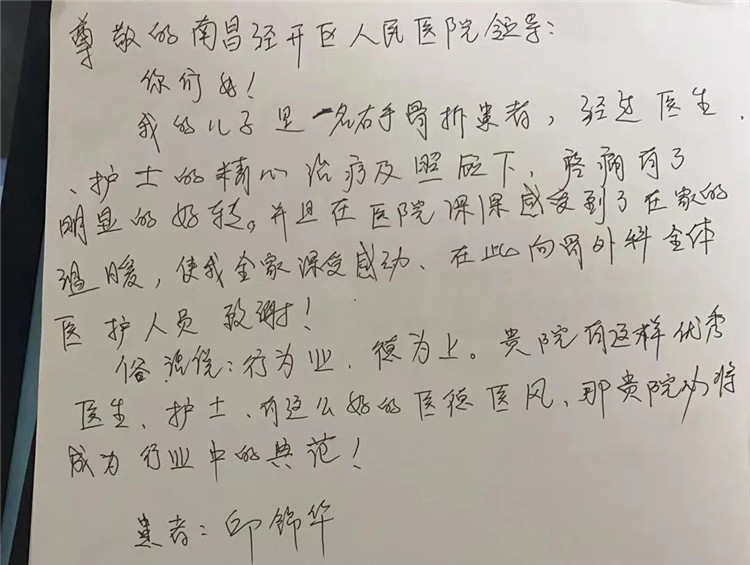 尊敬的南昌经开区人民医院领导:
你们好!
我的儿子是一名右手骨折患者,经过医生
、护士的精心治疗及照应下,疼痛有了
明显的好转。并且在医院深深感受到了在家的
温暖,使我全家深受感动、在此向骨外科全体
医护人员致谢!
俗话说:行为业、德为上。贵院有这样优秀
医生、护士、有这么好的医德医风、那贵院必将
成为行业中的典范!
患者:邱锦华